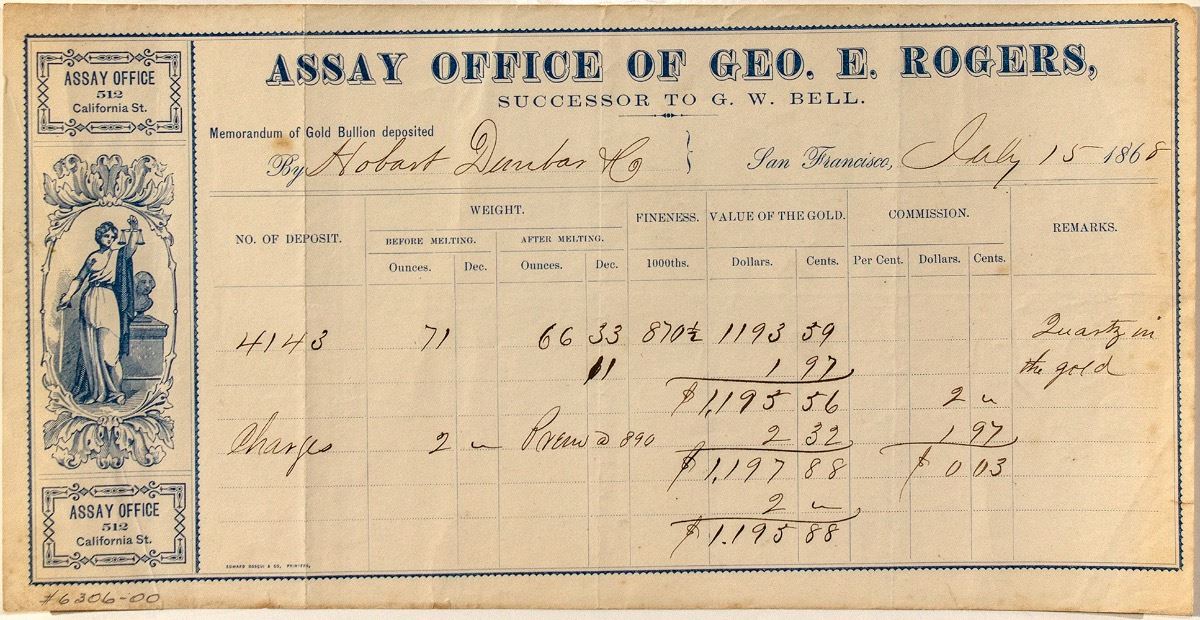 ASSAY OFFICE
512
California St.
ASSAY OFFICE OF GEO. E. ROGERS,
SUCCESSOR TO G. W. BELL.
Memorandum of Gold Bullion deposited
By Hobart Dunbar & Co } San Francisco, July 15 1868
NO. OF DEPOSIT. WEIGHT. FINENESS. VALUE OF THE GOLD. COMMISSION. REMARKS.
BEFORE MELTING. AFTER MELTING.
Ounces. Dec. Ounces. Dec. 1000ths. Dollars. Cents. Per Cent. Dollars. Cents.
4143 71 66 33 870½ 1193 59 Quartz in
11 1 97 the gold
$1,195 56 2 "
Charges 2 " Prem @ 890 2 32 1 97
$1,197 88 $ 0 03
2 "
$1.195 88
ASSAY OFFICE
512
California St.
EDWARD BOSQUI & CO, PRINTERS,
#6306-00